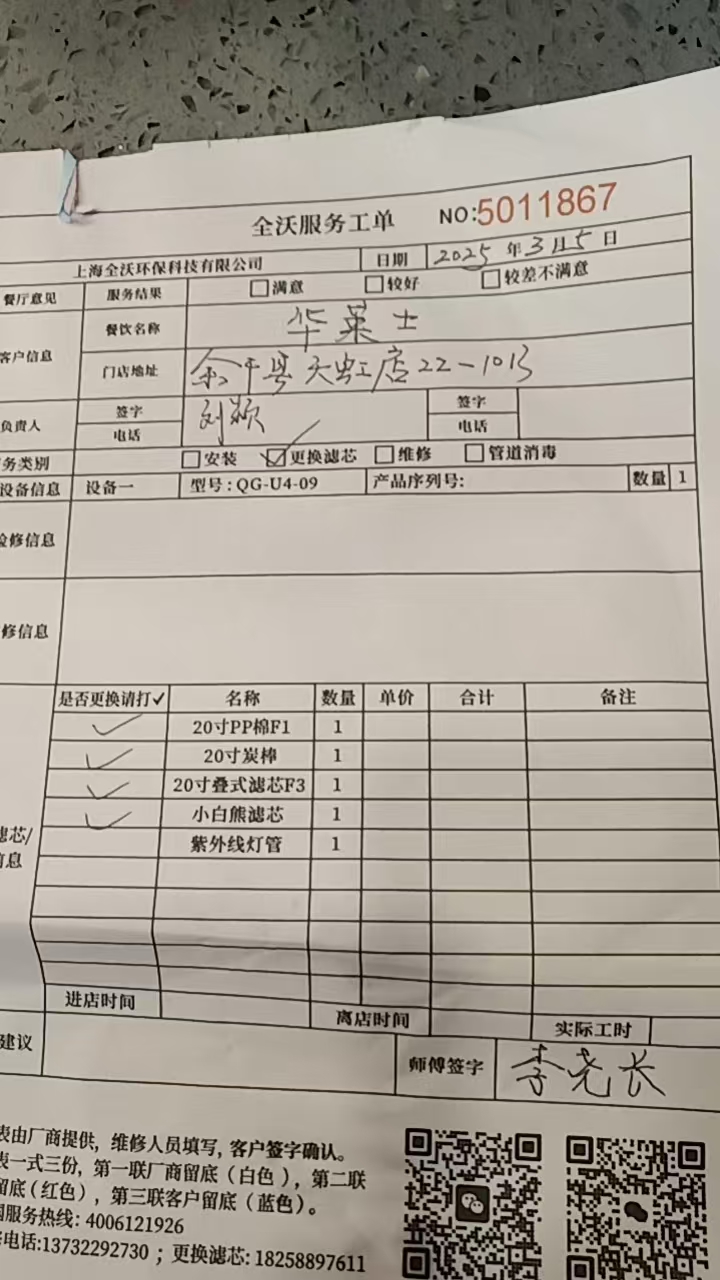 全沃服务工单 NO:5011867
上海全沃环保科技有限公司 日期 2025年3月5日
餐厅意见 服务结果 □满意 □较好 □较差不满意
客户信息 餐饮名称 华莱士
门店地址 余干县天虹店22-1013
负责人 签字 刘颖 签字
电话 电话
务类别 □安装 ☑更换滤芯 □维修 □管道消毒
设备信息 设备一 型号:QG-U4-09 产品序列号: 数量 1
检修信息
修信息
是否更换请打✓ 名称 数量 单价 合计 备注
✓ 20寸PP棉F1 1
✓ 20寸炭棒 1
✓ 20寸叠式滤芯F3 1
✓ 小白熊滤芯 1
紫外线灯管 1
滤芯/
信息
进店时间 离店时间 实际工时
建议 师傅签字 李尧长
表由厂商提供，维修人员填写，客户签字确认。
表一式三份，第一联厂商留底（白色），第二联
留底（红色），第三联客户留底（蓝色）。
国服务热线: 4006121926
电话:13732292730 ；更换滤芯: 18258897611